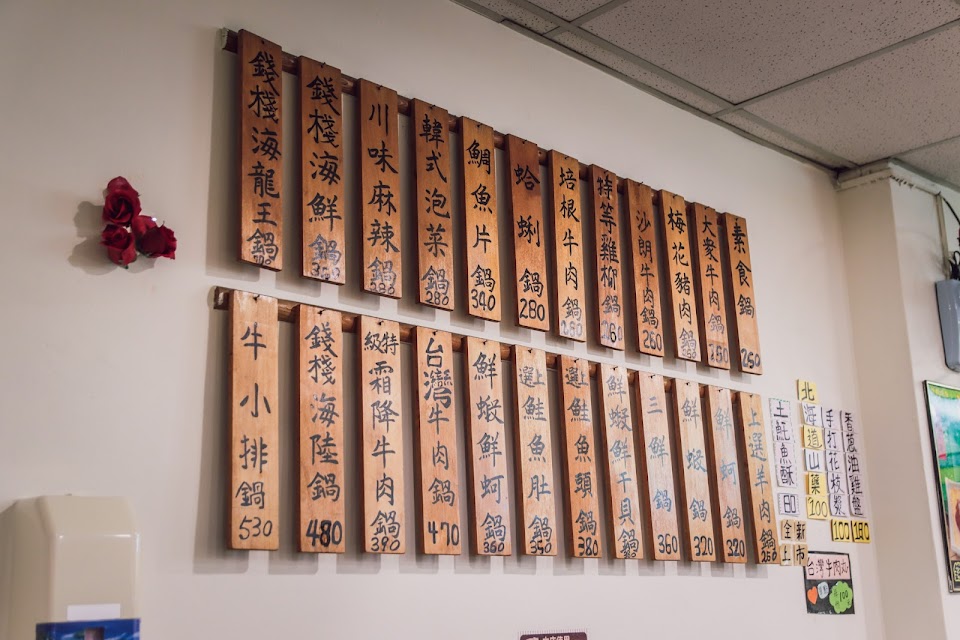 錢棧海龍王鍋
錢棧海鮮鍋
川味麻辣鍋
韓式泡菜鍋 280
鯛魚片鍋 340
蛤蜊鍋 280
培根牛肉鍋 260
特等雞柳鍋 260
沙朗牛肉鍋 260
梅花豬肉鍋
大衆牛肉鍋 250
素食鍋 250
牛小排鍋 530
錢棧海陸鍋 480
特級霜降牛肉鍋 390
台灣牛肉鍋 470
鮮蝦鮮蚵鍋 360
上選鮭魚肚鍋 350
上選鮭魚頭鍋 380
鮮蝦鮮干貝鍋
三鮮鍋 360
鮮蝦鍋 320
鮮蚵鍋 320
上選羊肉鍋 250
土魠魚酥
北海道山藥 100
手打花枝漿 100
香蔥油雞盤 180
全新上市
台灣牛肉丸
100